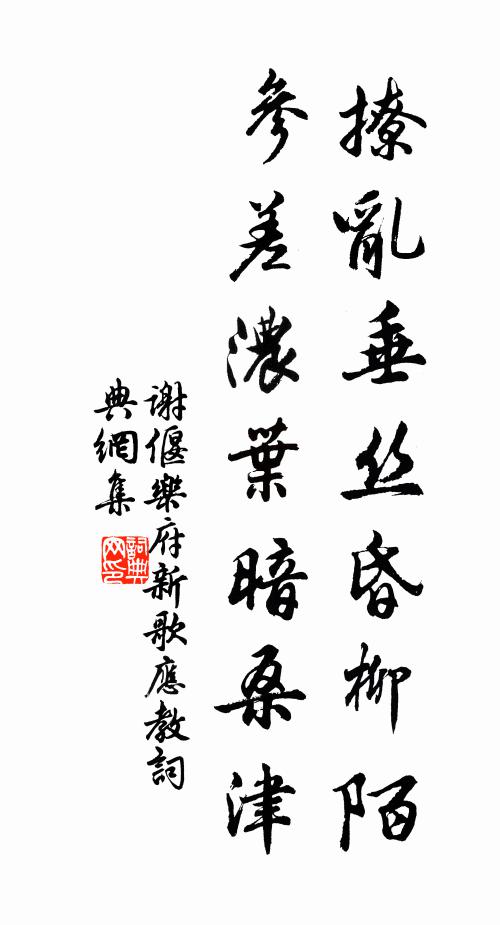 撩亂垂丝昏柳陌
參差濃葉暗桑津
谢偃樂府新歌應教詞
典網集
詞典网印